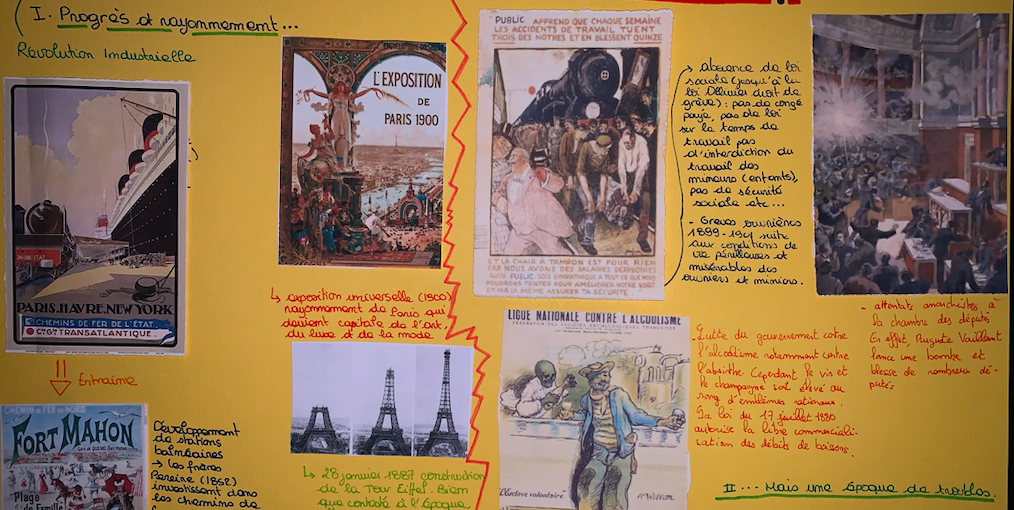 I. Progrès et rayonnement...
Révolution Industrielle
PARIS.HAVRE.NEW YORK
CHEMINS DE FER DE L'ÉTAT.
Cie Gle TRANSATLANTIQUE.
Entraine
CHEMIN DE FER DU NORD
FORT MAHON
Plage
de Famille
Développement
de stations
balnéaires
→ Les frères
Pereire (1852)
investissent dans
les chemins de
L'EXPOSITION
DE
PARIS 1900
↳ exposition universelle (1900)
rayonnement de Paris qui
devient capitale de l'art,
du luxe et de la mode
↳ 28 janvier 1887 construction
de la Tour Eiffel. Bien
que contesté à l'époque,
PUBLIC APPREND QUE CHAQUE SEMAINE
LES ACCIDENTS DE TRAVAIL TUENT
TROIS DES NOTRES ET EN BLESSENT QUINZE
ET LA CHAIR A TAMPON EST POUR RIEN
CAR NOUS AVONS DES SALAIRES DERISOIRES
AUSSI PUBLIC SOIS SYMPATHIQUE A TOUT CE QUE NOUS
POURRONS TENTER POUR AMÉLIORER NOTRE SORT
ET PAR LA MEME ASSURER TA SÉCURITÉ
→ absence de loi
sociale (jusqu'à la
loi Ollivier droit de
grève) : pas de congé
payé, pas de loi
sur le temps de
travail pas
d'interdiction du
travail des
mineurs (enfants),
pas de sécurité
sociale etc...
- Grèves ouvrières
1899-1901 suite
aux conditions de
vie périlleuses et
misérables des
ouvriers et mineurs.
LIGUE NATIONALE CONTRE L'ALCOOLISME
L'esclave volontaire
Lutte du gouvernement contre
l'alcoolisme notamment contre
l'absinthe. Cependant le vin et
le champagne sont élevé au
rang d'emblèmes nationaux.
La loi du 17 juillet 1880
autorise la libre commerciali-
sation des débits de boissons.
- attentats anarchistes à
la chambre des députés
En effet, Auguste Vaillant
lance une bombe et
blesse de nombreux dé-
putés
II ... Mais une époque de troubles.